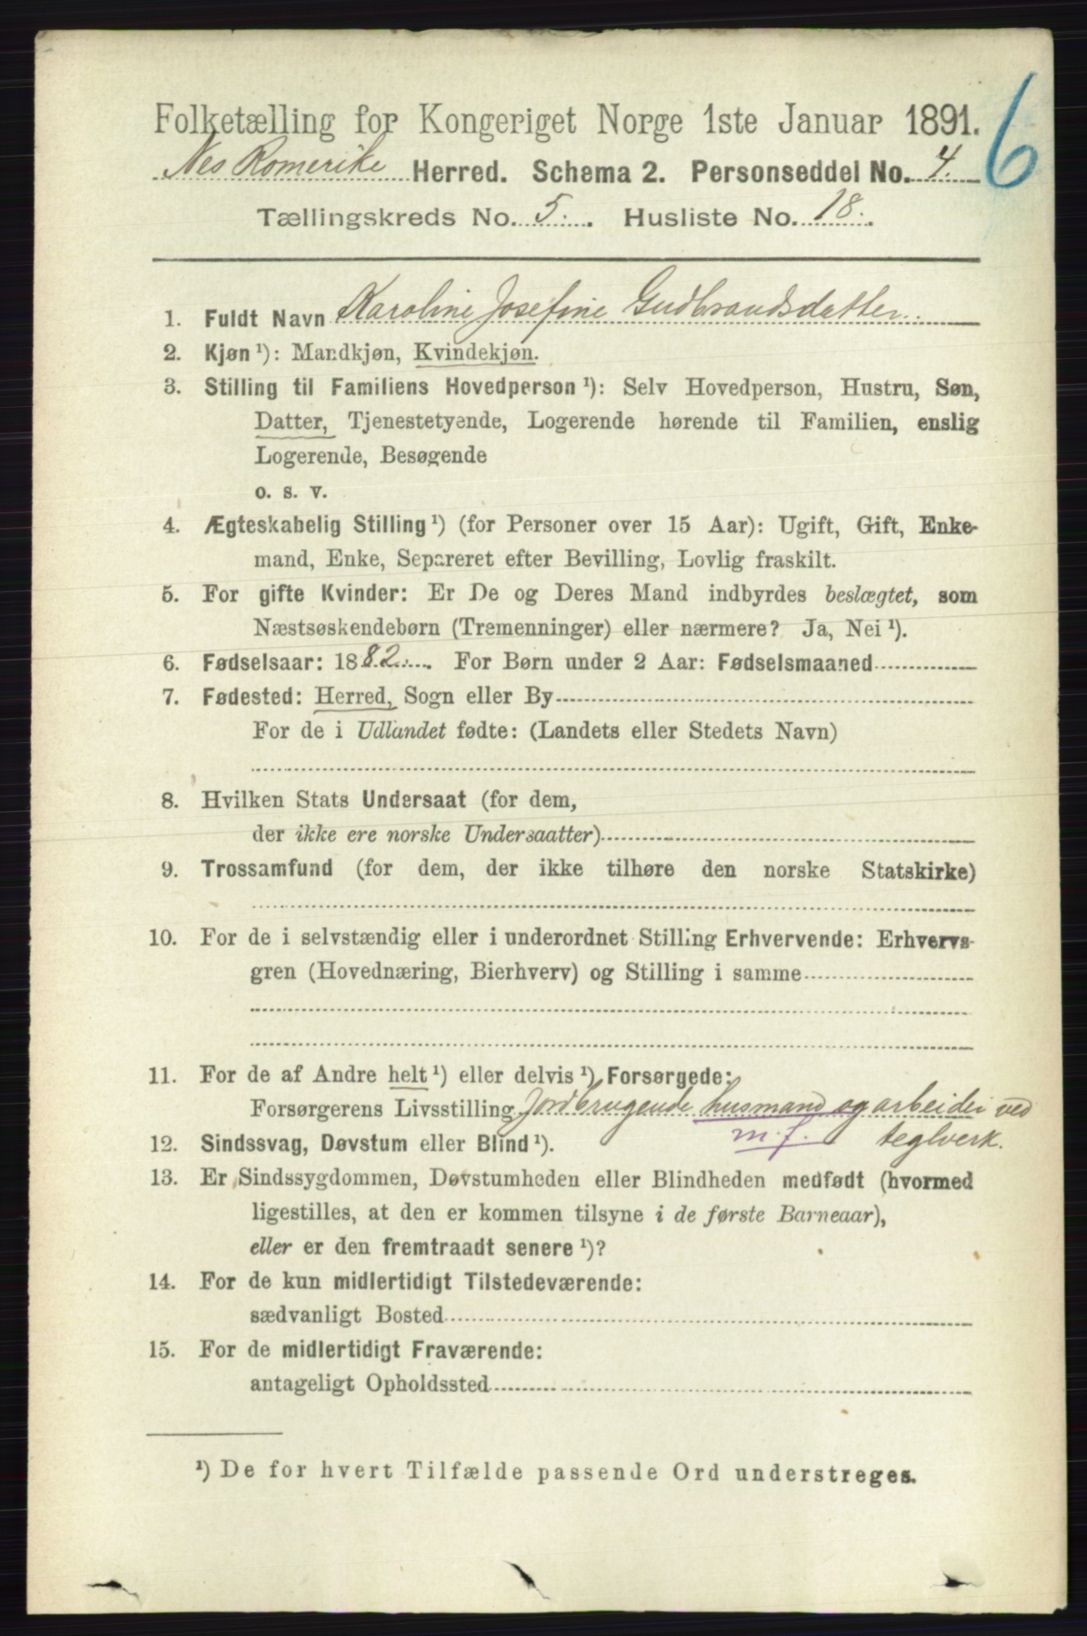 Folketælling for Kongeriget Norge 1ste Januar 1891.
6
Nes Romerike Herred. Schema 2. Personseddel No. 4.
Tællingskreds No. 5. Husliste No. 18.
1. Fuldt Navn Karoline Josefine Gudbrandsdatter.
2. Kjøn ¹): Mandkjøn, Kvindekjøn.
3. Stilling til Familiens Hovedperson ¹): Selv Hovedperson, Hustru, Søn,
Datter, Tjenestetyende, Logerende hørende til Familien, enslig
Logerende, Besøgende
o. s. v.
4. Ægteskabelig Stilling ¹) (for Personer over 15 Aar): Ugift, Gift, Enke-
mand, Enke, Separeret efter Bevilling, Lovlig fraskilt.
5. For gifte Kvinder: Er De og Deres Mand indbyrdes beslægtet, som
Næstsøskendebørn (Tremenninger) eller nærmere? Ja, Nei ¹).
6. Fødselsaar: 1882. For Børn under 2 Aar: Fødselsmaaned
7. Fødested: Herred, Sogn eller By
For de i Udlandet fødte: (Landets eller Stedets Navn)
8. Hvilken Stats Undersaat (for dem,
der ikke ere norske Undersaatter)
9. Trossamfund (for dem, der ikke tilhøre den norske Statskirke)
10. For de i selvstændig eller i underordnet Stilling Erhvervende: Erhvervs-
gren (Hovednæring, Bierhverv) og Stilling i samme
11. For de af Andre helt ¹) eller delvis ¹) Forsørgede:
Forsørgerens Livsstilling Jordbrugende husmand og arbeider ved
m. f. teglverk.
12. Sindssvag, Døvstum eller Blind ¹).
13. Er Sindssygdommen, Døvstumheden eller Blindheden medfødt (hvormed
ligestilles, at den er kommen tilsyne i de første Barneaar),
eller er den fremtraadt senere ¹)?
14. For de kun midlertidigt Tilstedeværende:
sædvanligt Bosted
15. For de midlertidigt Fraværende:
antageligt Opholdssted
¹) De for hvert Tilfælde passende Ord understreges.